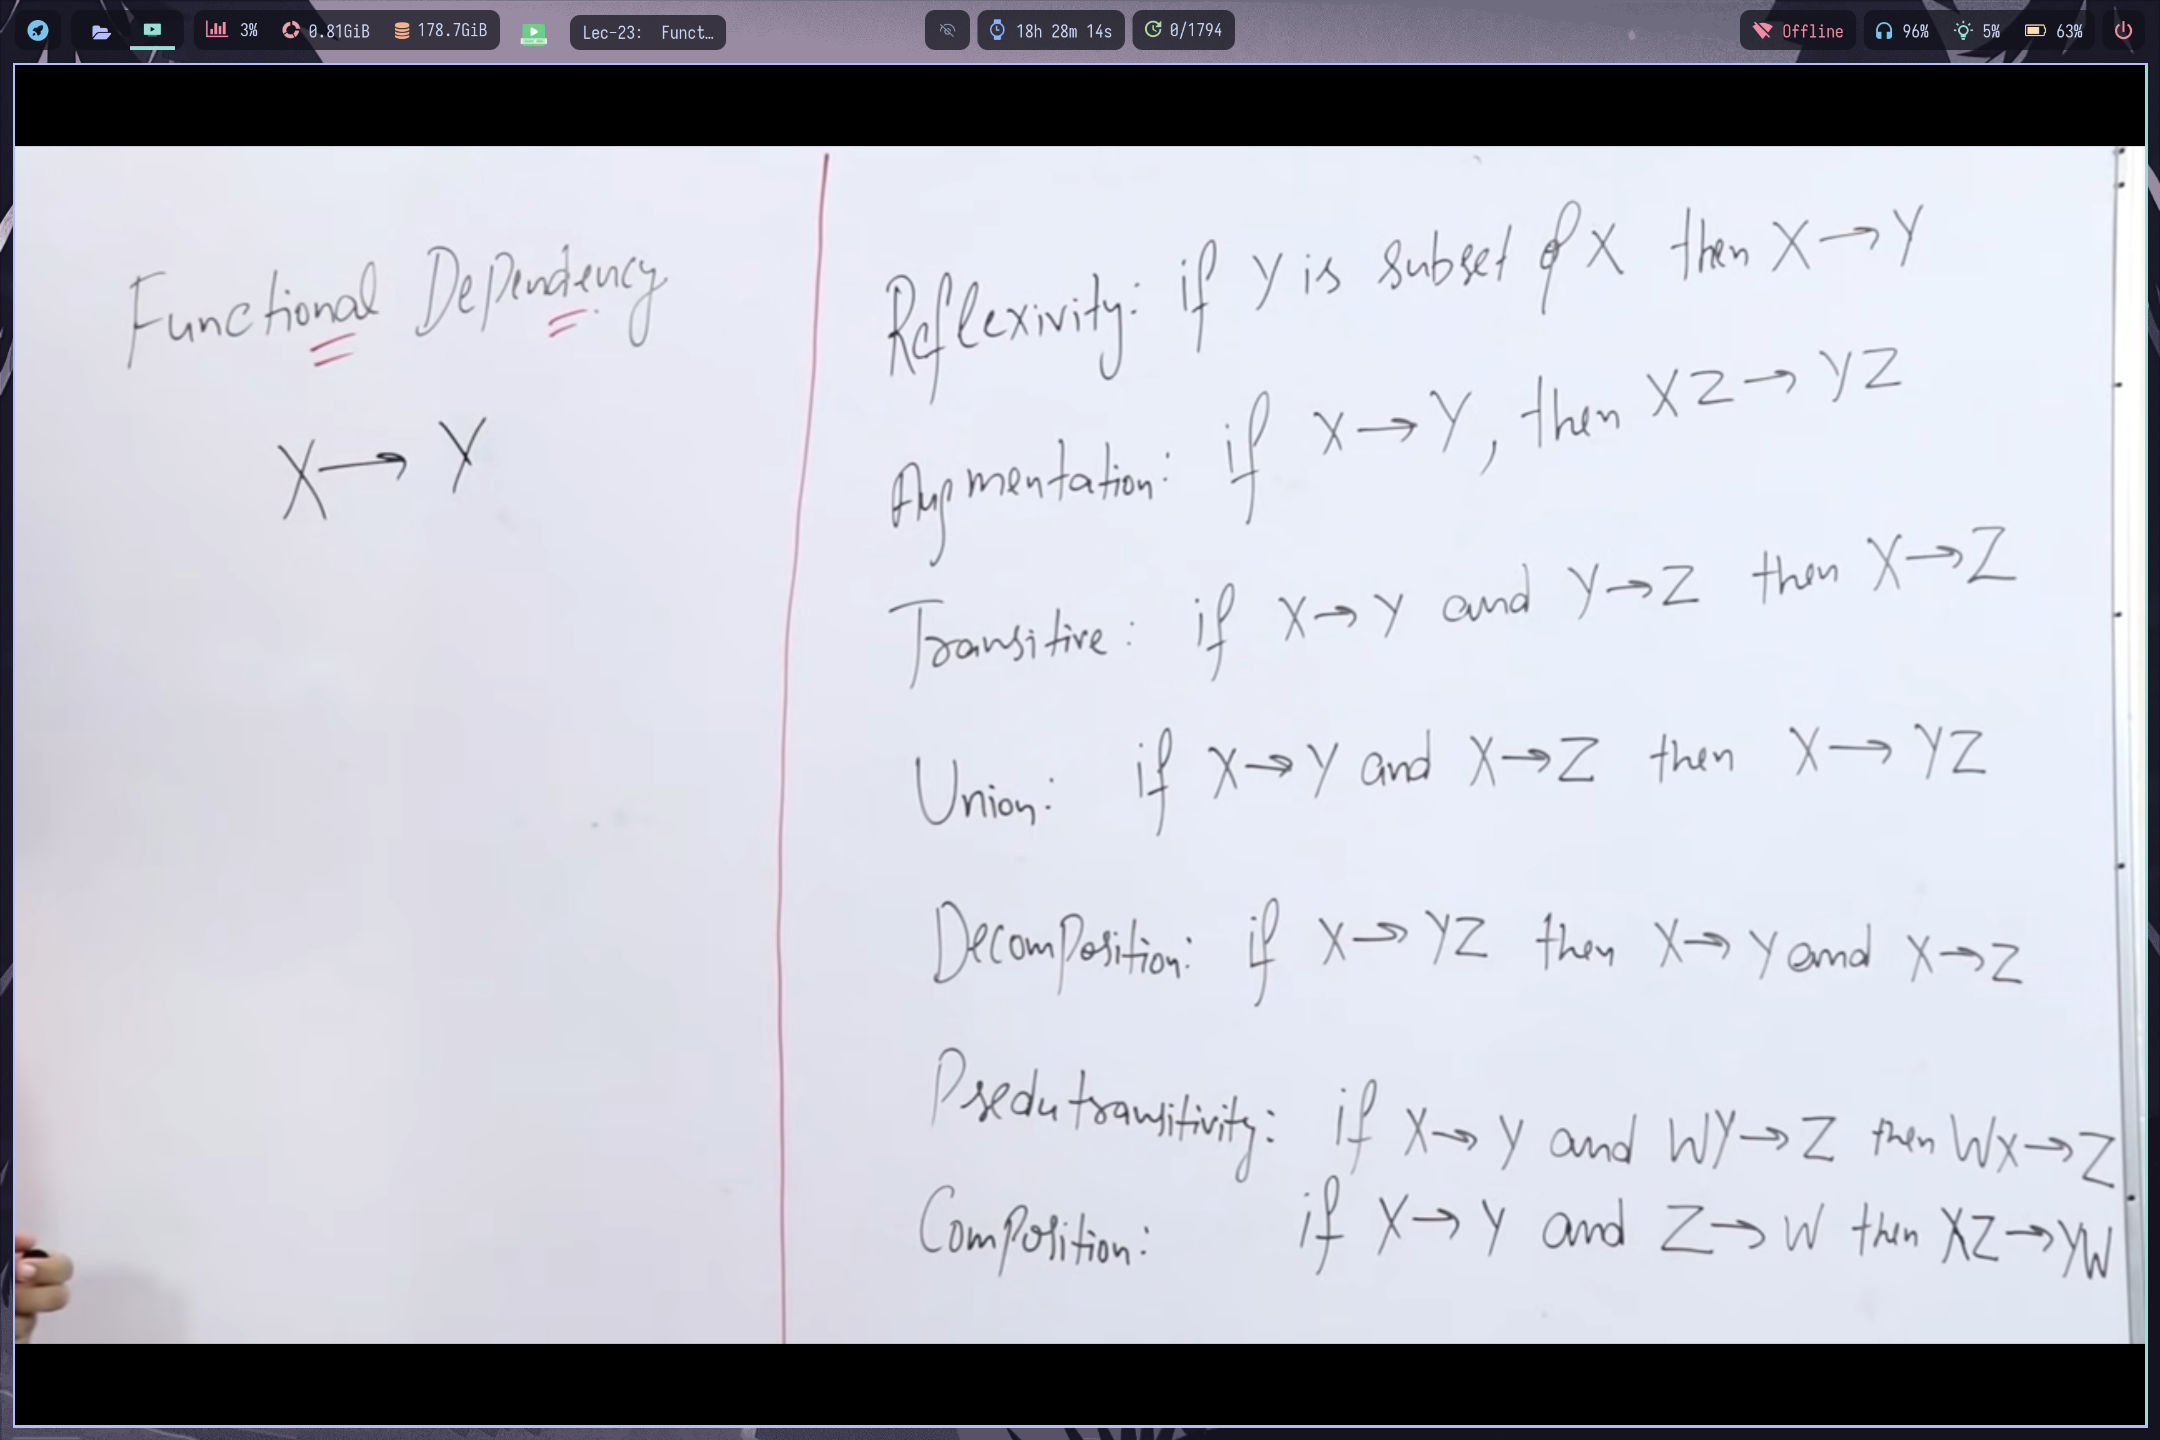 3% 0.81GiB 178.7GiB Lec-23: Funct… 18h 28m 14s 0/1794 Offline 96% 5% 63%
Functional Dependency
X→Y
Reflexivity: if Y is subset of X then X→Y
Augmentation: if X→Y, then XZ→YZ
Transitive: if X→Y and Y→Z then X→Z
Union: if X→Y and X→Z then X→YZ
Decomposition: if X→YZ then X→Y and X→Z
Psedutransitivity: if X→Y and WY→Z then WX→Z
Composition: if X→Y and Z→W then XZ→YW